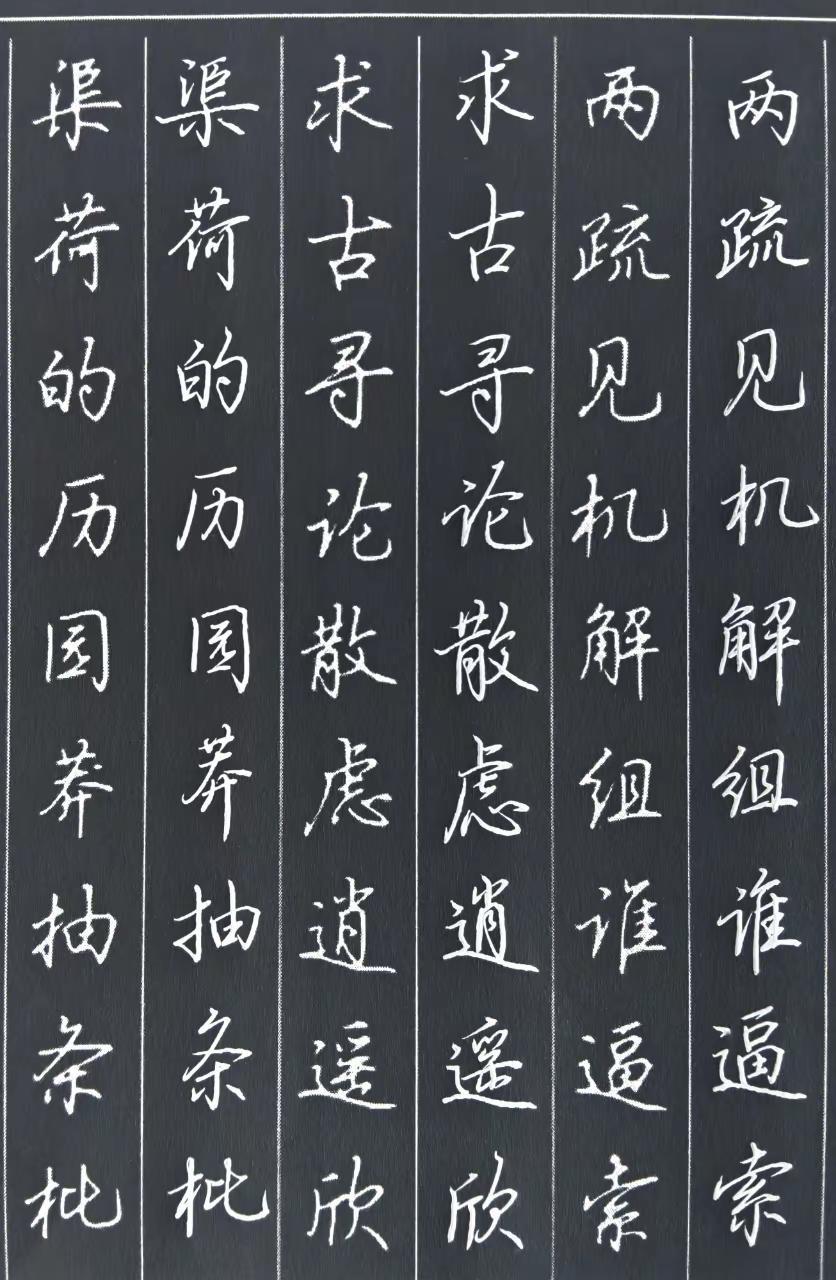 两疏见机解组谁逼索
两疏见机解组谁逼索
求古寻论散虑逍遥欣
求古寻论散虑逍遥欣
渠荷的历园莽抽条枇
渠荷的历园莽抽条枇